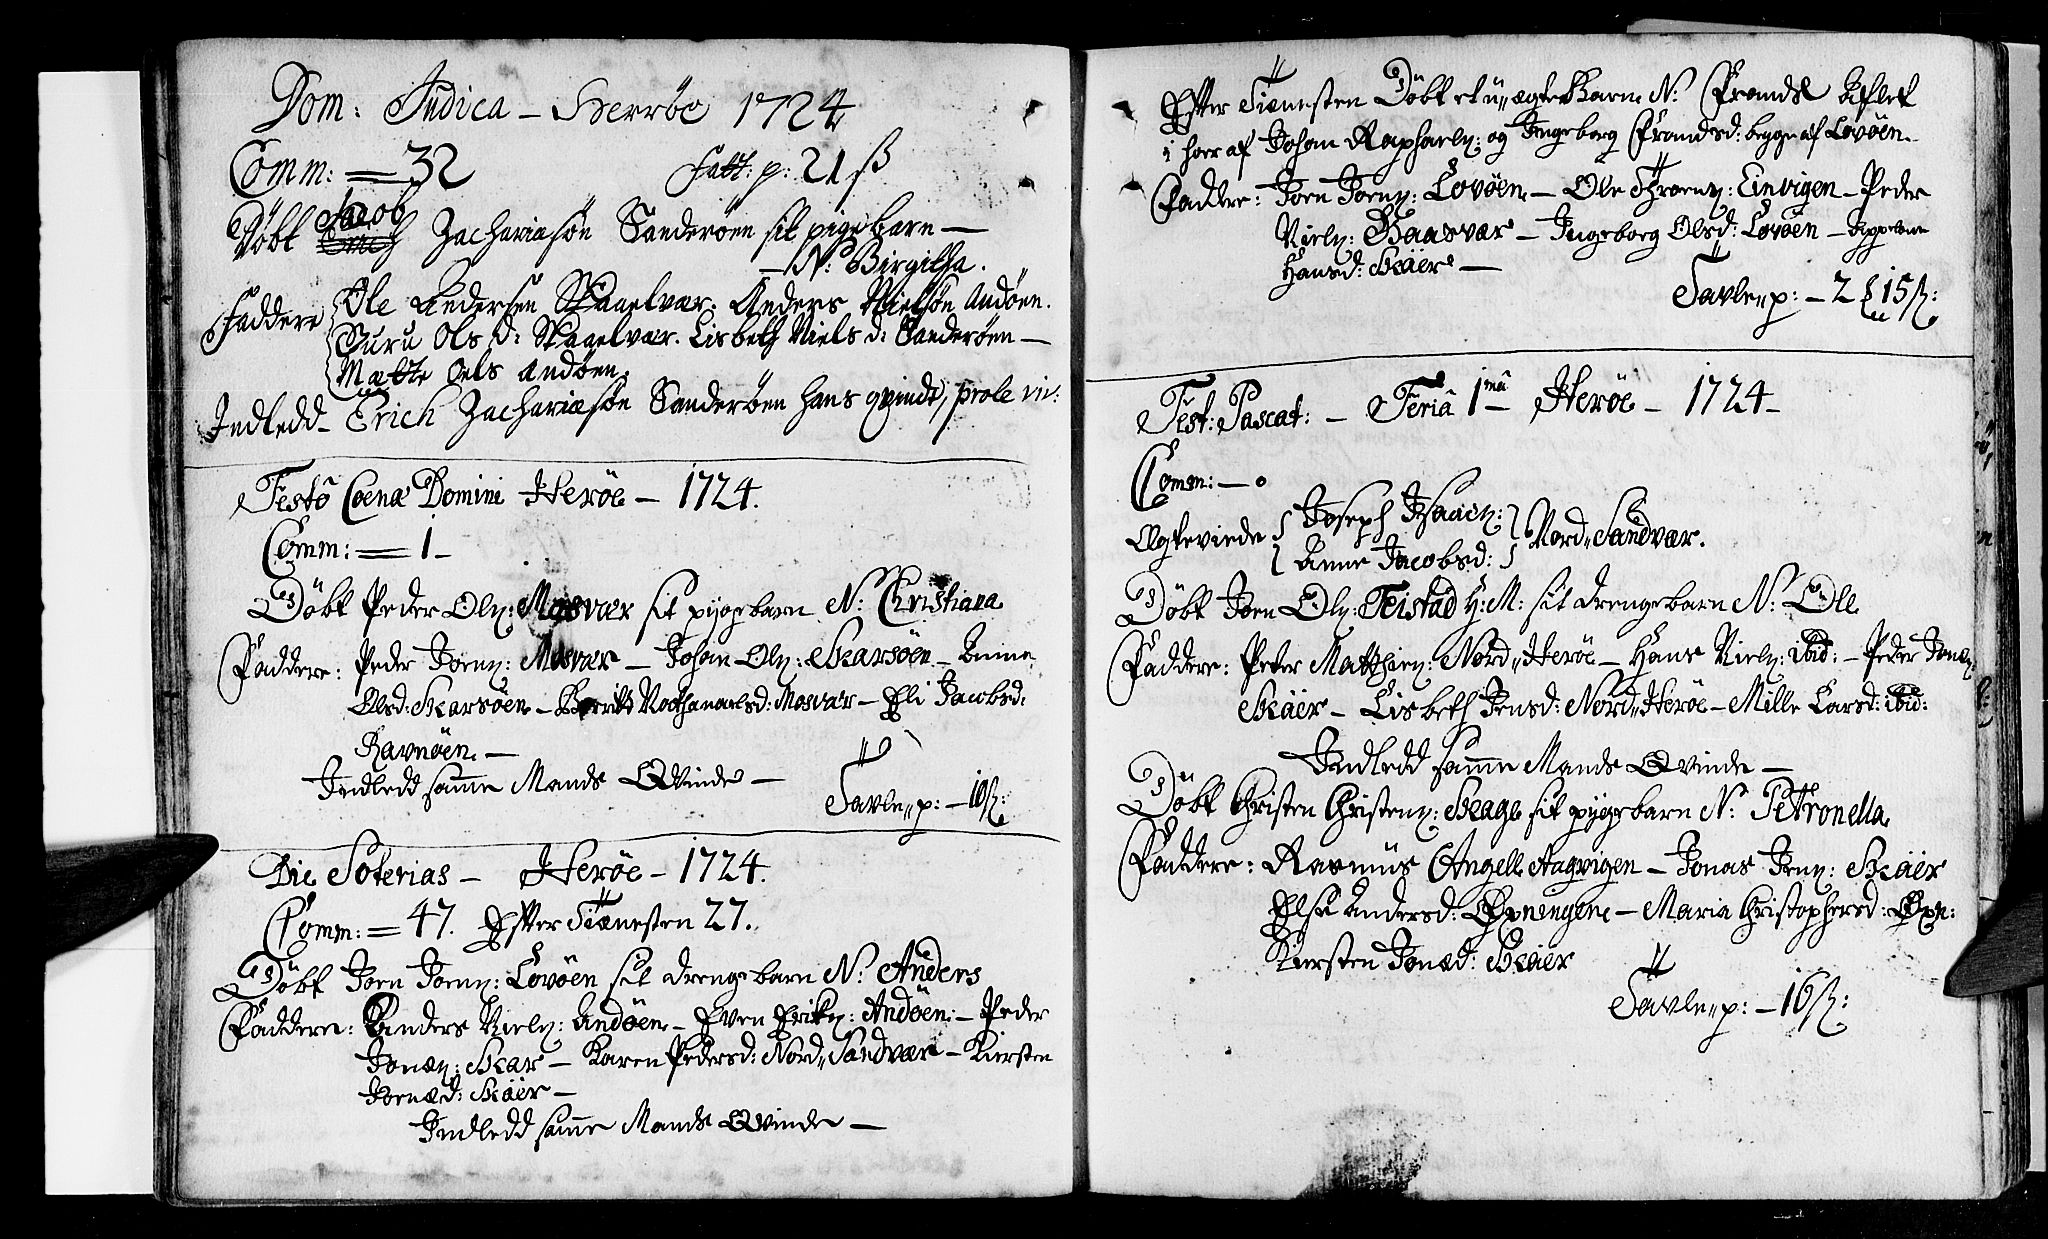 Dom: Judica – Herröe 1724
Comm: = 32 Fatt: p: 21 ß
Jacob
Döbt Erich Zachariæsön Sanderöen sit pigebarn —
– N: Birgitha.
Faddere Ole Andersen Skaaelvær. Anders Nielsön Andöen.
Guru Ols d: Skaaelvær. Lisbeth Niels d: Sanderöen —
Mætte Oels Andöen.
Indledd – Erich Zachariæsön Sanderöen hans qvinde, prole in:
Festo Coenæ Domini Heröe – 1724.
Comm: = 1 –
Döbt Peder Ols: Mosvær sit pygebarn N: Christiana
Faddere: Peder Joens: Mosvær – Johan Ols: Skarsöen – Anne
Olsd: Skarsöen – Berith Nathanaelsd: Mosvær – Eli Jacobsd:
Ravnöen. —
Indledd samme Mands Qvinde —
Tavle p: – 10 ß:
Die Soterias – Heröe – 1724.
Comm: = 47. Efter Tienesten 27.
Döbt Joen Joens: Lovöen sit drengebarn N: Anders
Faddere: Anders Niels: Andöen – Even Eriks: Andöen – Peder
Jonæs: Skar – Karen Pedersd: Nord Sandvær – Kiersten
Jonæd: Skäer —
Indledd samme Mands Qvinde —
Efter Tienesten Döbt et u ægte Barn N: Frands Aflet
i hoer af Johan Raphaels: og Ingeborg Frandsd: begge af Lovöen.
Faddere: Joen Joens: Lovöen – Ole Throens: Einvigen – Peder
Niels: Baasvær – Ingeborg Olsd: Lovöen – Appelone
Hansd: Skäer —
Tavle p: – 2 ℔ 15 ß:
Fest: Pascat: – Feriâ 1mâ Heröe – 1724 –
Comm: – 0
Egtevinde { Joseph Isaacs: } Nord Sandvær.
{ Anne Jacobsd: }
Döbt Joen Ols: Teistad H: M: sit drengebarn N: Ole
Faddere: Peter Matthies: Nord Heröe – Hans Niels: ibid: – Peder Jonæs:
Skäer – Lisbeth Jensd: Nord Heröe – Mille Larsd: ibid:
Indledd samme Mands Qvinde —
Döbt Christen Christens: Skage sit pygebarn N: Petronella
Faddere: Rasmus Angell Aagvigen – Jonas Jens: Skäer
Else Andersd: Öxningene – Maria Christophersd: Öxn:
Kiersten Jonæd: Skäer
Tavle p: – 16 ß: